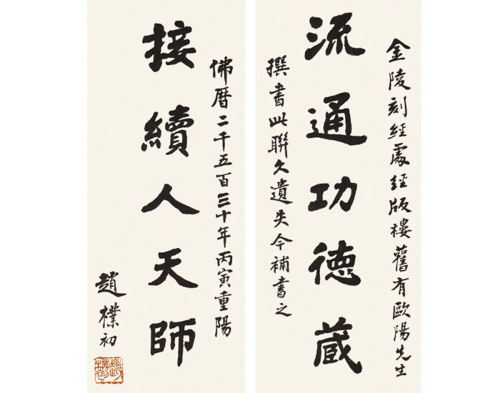 金陵刻經處經版樓舊有歐陽先生
流通功徳蔵
撰書此聯久遺失今補書之
佛暦二千五百三十年丙寅重陽
接續人天師
趙樸初